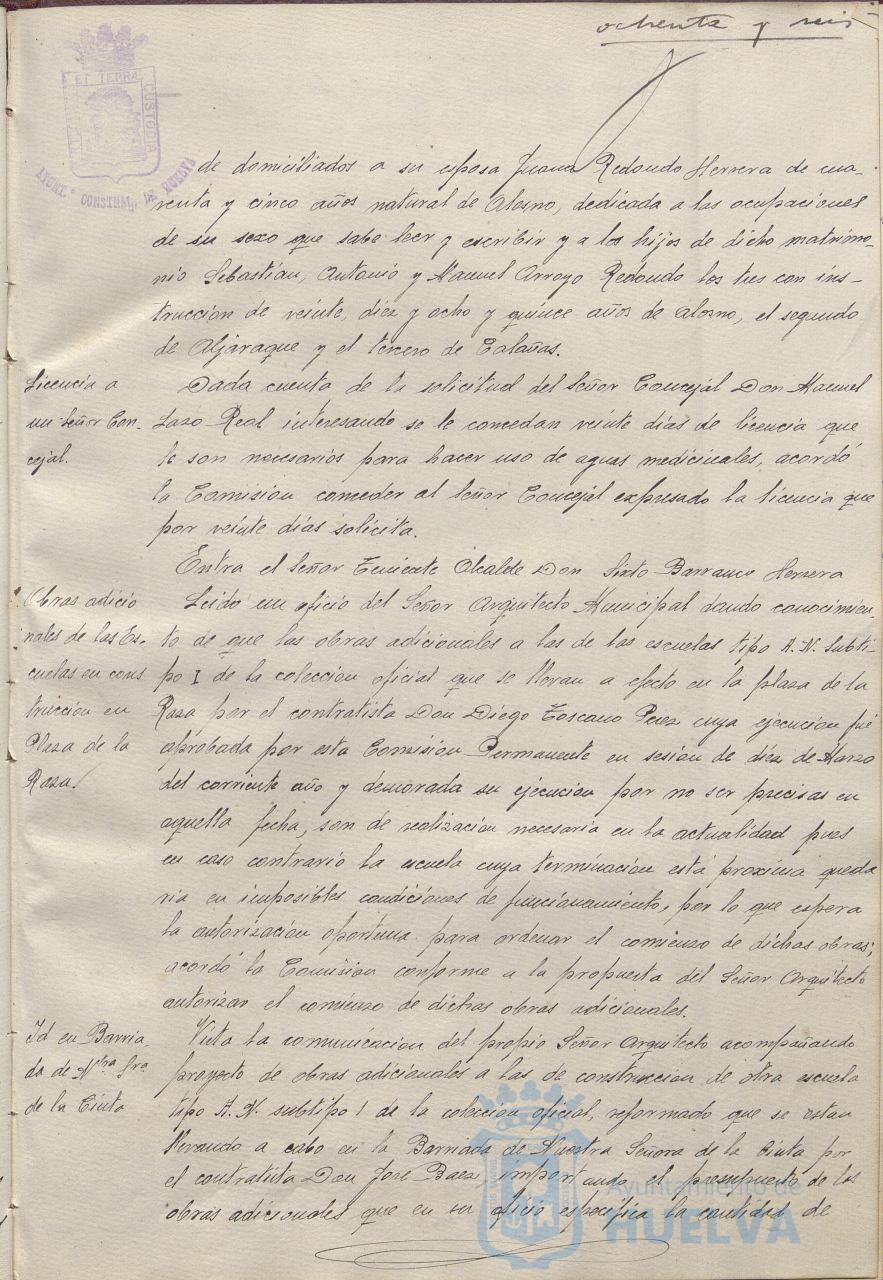 ochenta y seis
ET TERRÆ
CUSTODIA
AYUNT.º CONSTNAL. DE HUELVA
de domiciliados a su esposa Juana Redondo Herrera de cua-
renta y cinco años natural de Alosno, dedicada a las ocupaciones
de su sexo que sabe leer y escribir y a los hijos de dicho matrimo-
nio Sebastian, Antonio y Manuel Arroyo Redondo los tres con ins-
trucción de veinte, diez y ocho y quince años de Alosno, el segundo
de Aljaraque y el tercero de Calañas.
Licencia a
un Señor Con-
cejal.
Dada cuenta de la solicitud del Señor Concejal Don Manuel
Lazo Real interesando se le concedan veinte días de licencia que
le son necesarios para hacer uso de aguas medicinales, acordó
la Comision conceder al Señor Concejal expresado la licencia que
por veinte días solicita.
Entra el Señor Teniente Alcalde Don Sixto Barranco Herrera
Obras adicio
nales de las Es-
cuelas en cons
trucción en
Plaza de la
Rosa.
Leido un oficio del Señor Arquitecto Municipal dando conocimien-
to de que las obras adicionales a las de las escuelas tipo A.N. subti-
po I de la coleccion oficial que se llevan a efecto en la plaza de la
Rosa por el contratista Don Diego Toscano Perez cuya ejecucion fué
aprobada por esta Comision Permanente en sesion de diez de Marzo
del corriente año y demorada su ejecucion por no ser precisas en
aquella fecha, son de realizacion necesaria en la actualidad pues
en caso contrario la escuela cuya terminacion está proxima queda
ria en imposibles condiciones de funcionamiento, por lo que espera
la autorizacion oportuna para ordenar el comienzo de dichas obras;
acordó la Comision conforme a la propuesta del Señor Arquitecto
autorizar el comienzo de dichas obras adicionales.
Id en Barria
da de Ntra Sra
de la Cinta
Vista la comunicacion del propio Señor Arquitecto acompañando
proyecto de obras adicionales a las de construccion de otra escuela
tipo A.N. subtipo 1 de la coleccion oficial, reformado que se estan
llevando a cabo en la Barriada de Nuestra Señora de la Cinta por
el contratista Don Jose Baez importando el presupuesto de las
obras adicionales que en su oficio especifica la cantidad de
Ayuntamiento de
HUELVA